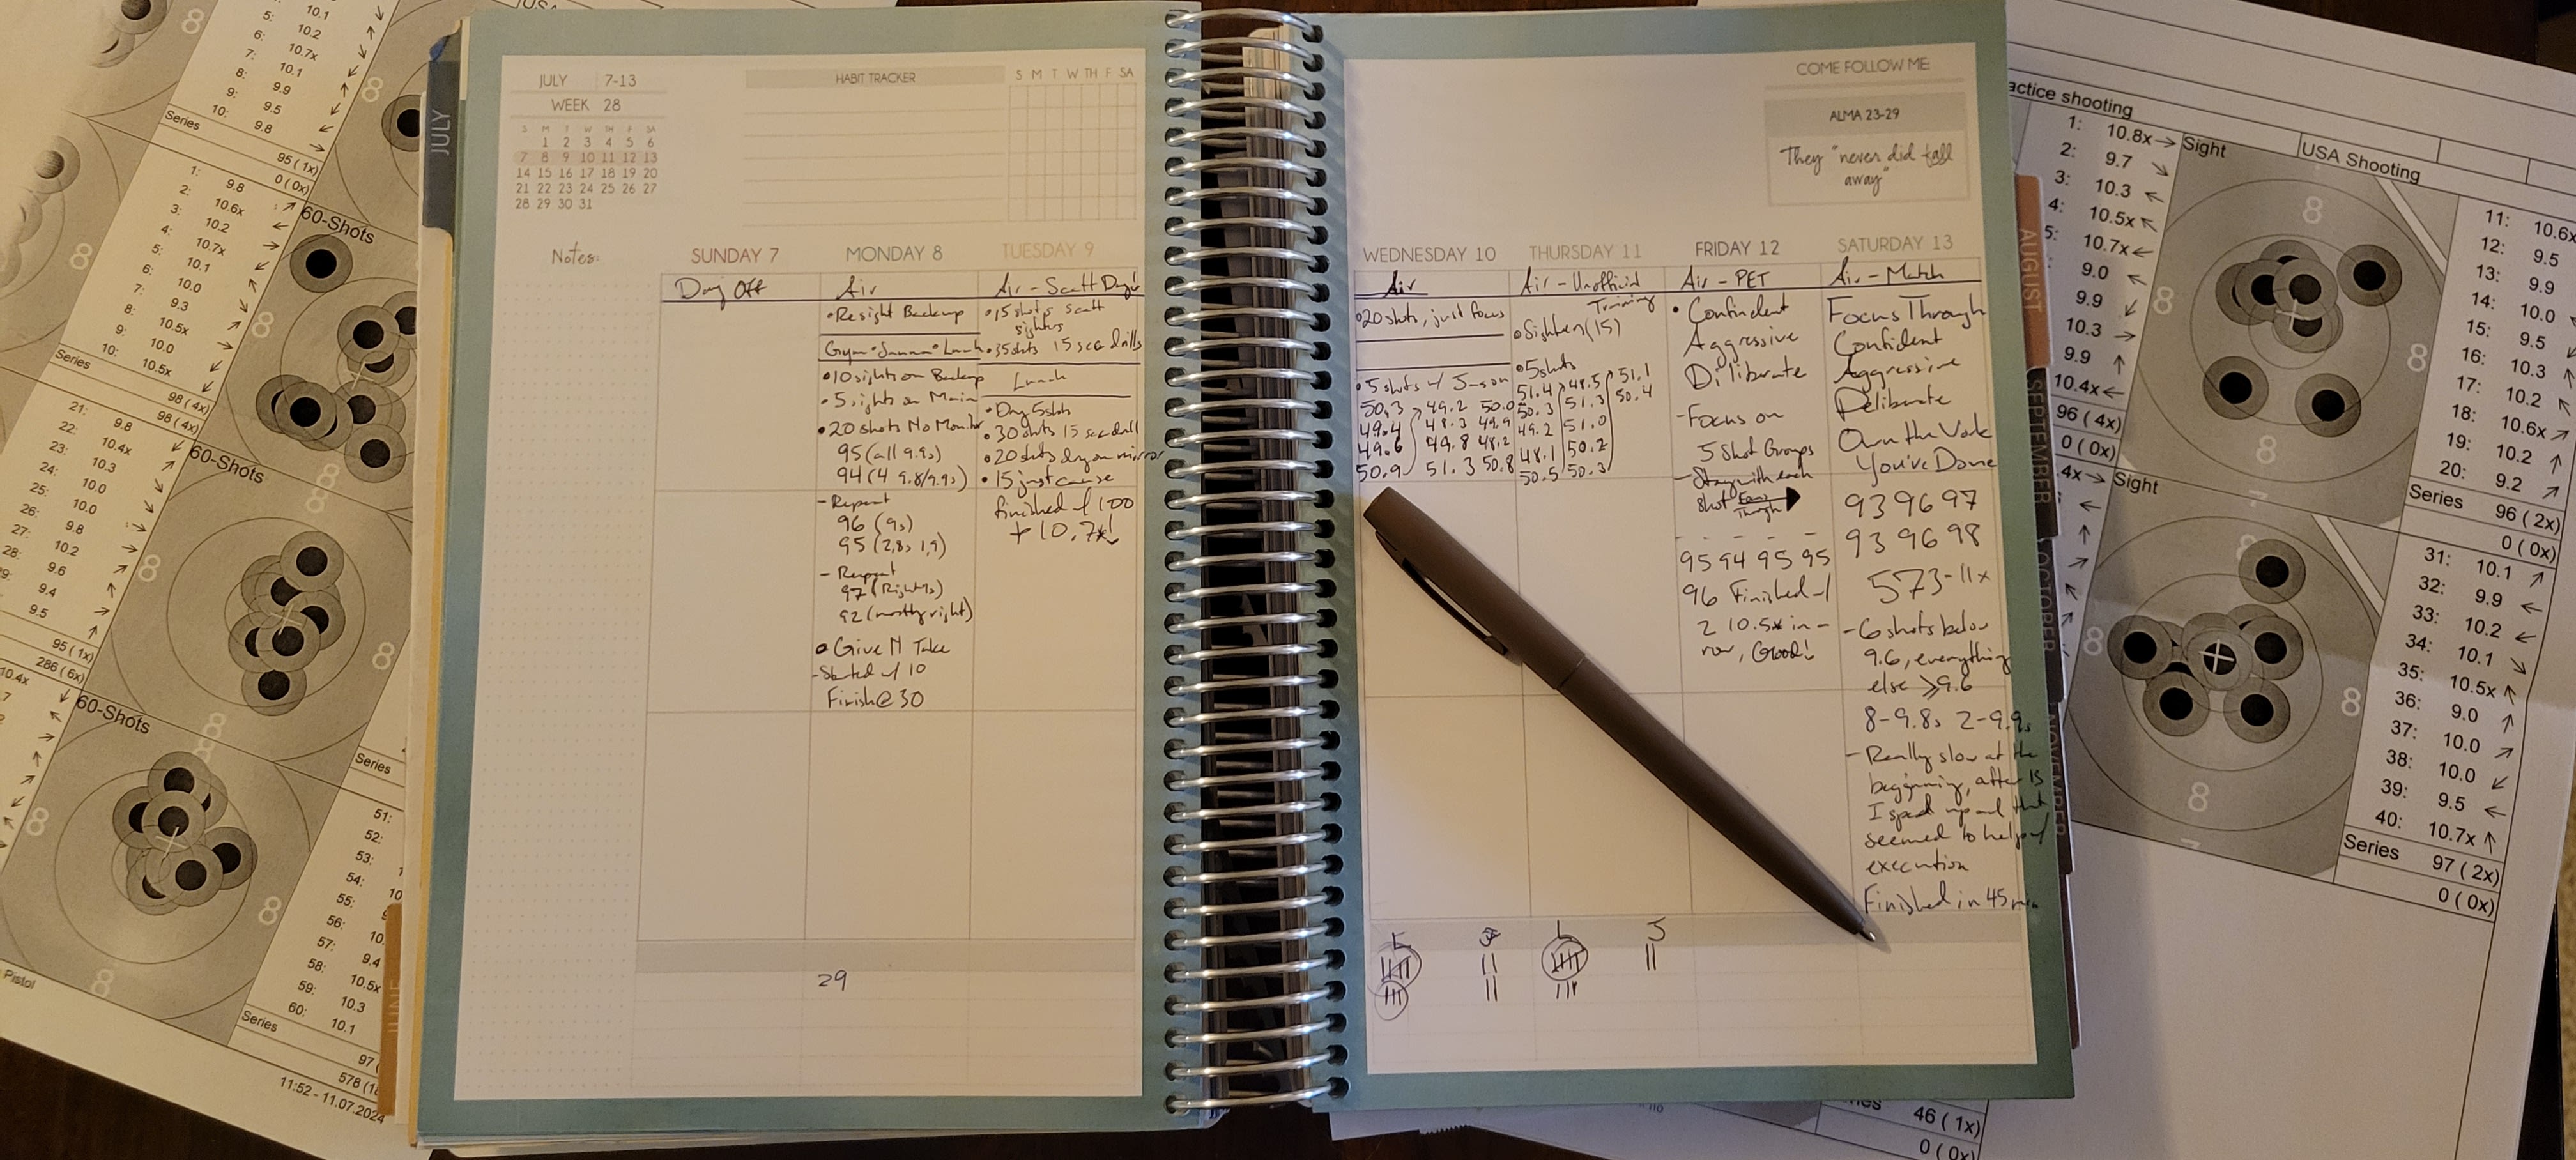 JULY 7-13
WEEK 28
S M T W TH F SA
1 2 3 4 5 6
7 8 9 10 11 12 13
14 15 16 17 18 19 20
21 22 23 24 25 26 27
28 29 30 31
HABIT TRACKER
S M T W TH F SA
JULY
Notes:
SUNDAY 7
Day Off
MONDAY 8
Air
•Resight Backup
Gym•Sauna•Lunch
•10 sights on Backup
•5 sights on Main
•20 shots No Monitor
95 (all 9.9s)
94 (4 9.8/9.9s)
- Repeat
96 (9s)
95 (2,8s 1,9)
- Repeat
97 (Right 9s)
92 (mostly right)
• Give N Take
-Started w/ 10
Finish @ 30
29
TUESDAY 9
Air - Scatt Day!
•15 shots scatt
sighters
•35 shots 15 sec drills
Lunch
•Dry 5 shots
•30 shots 15 sec drill
•20 shots dry on mirror
•15 just cause
finished w/ 100
+ 10.7x!
COME FOLLOW ME
ALMA 23-29
They "never did fall
away"
WEDNESDAY 10
Air
•20 shots, just focus
•5 shots w/ Jason
50.3 49.2 50.0
49.4 48.3 49.9
49.6 49.8 48.2
50.9 51.3 50.8
THURSDAY 11
Air - Unofficial
Training
•Sighters (15)
•5 shots
51.4 48.5 51.1
50.3 51.3 50.4
49.2 51.0
48.1 50.2
50.5 50.3
FRIDAY 12
Air - PET
• Confident
Aggressive
Diliberate
-Focus on
5 Shot Groups
-Stay with each
shot
95 94 95 95
96 Finished w/
2 10.5x in-
row, Good!
SATURDAY 13
Air - Match
Focus Through
Confident
Aggressive
Deliberate
Own the Work
You've Done
93 96 97
93 96 98
573-11x
-6 shots below
9.6, everything
else >9.6
8-9.8s 2-9.9s
-Really slow at the
beginning, after 15
I sped up and that
seemed to help w/
execution
Finished in 45 min
L J L J
JUNE
AUGUST
SEPTEMBER
OCTOBER
NOVEMBER
5: 10.1
6: 10.2
7: 10.7x
8: 10.1
9: 9.9
10: 9.5
9.8
Series 95 ( 1x)
0 ( 0x)
60-Shots
1: 9.8
2: 10.6x
3: 10.2
4: 10.7x
5: 10.1
6: 10.0
7: 9.3
8: 10.5x
9: 10.0
10: 10.5x
Series 98 ( 4x)
98 ( 4x)
60-Shots
21: 9.8
22: 10.4x
23: 10.3
24: 10.0
25: 10.0
26: 9.8
27: 10.2
28: 9.6
9.4
9.5
95 ( 1x)
286 ( 6x)
60-Shots
Series
51:
52:
53:
54:
55:
56:
57: 9.4
58: 10.5x
59: 10.3
60: 10.1
Series 97 (
578 (
Pistol
11:52 - 11.07.2024
practice shooting
USA Shooting
Sight
1: 10.8x
2: 9.7
3: 10.3
4: 10.5x
5: 10.7x
9.0
9.9
10.3
9.9
10.4x
96 ( 4x)
0 ( 0x)
Sight
11: 10.6x
12: 9.5
13: 9.9
14: 10.0
15: 9.5
16: 10.3
17: 10.2
18: 10.6x
19: 10.2
20: 9.2
Series 96 ( 2x)
0 ( 0x)
31: 10.1
32: 9.9
33: 10.2
34: 10.1
35: 10.5x
36: 9.0
37: 10.0
38: 10.0
39: 9.5
40: 10.7x
Series 97 ( 2x)
0 ( 0x)
46 ( 1x)
0 ( 0x)
8
8
8
8
8
8
8
8